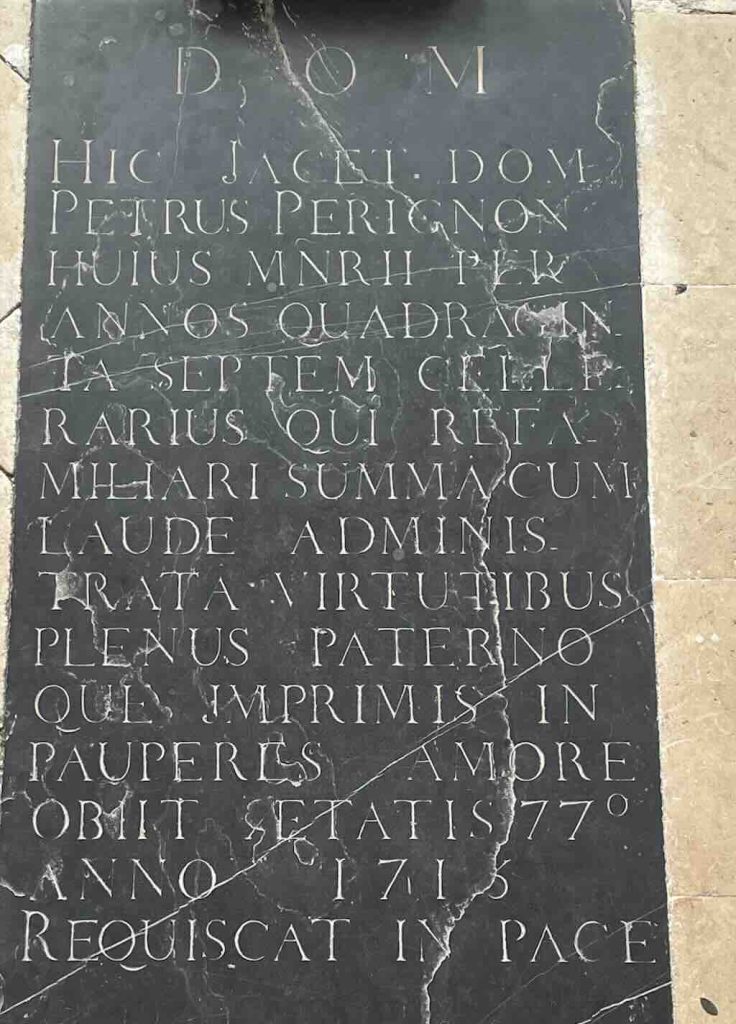 D O M
HIC JACET. DOM
PETRUS PERIGNON
HUIUS MÑRII PER
ANNOS QUADRAGIN-
TA SEPTEM CELLE-
RARIUS QUI REFA-
MILIARI SUMMA CUM
LAUDE ADMINIS-
TRATA VIRTUTIBUS
PLENUS PATERNO
QUE IMPRIMIS IN
PAUPERES AMORE
OBIIT ÆTATIS 77º
ANNO 1715
REQUISCAT IN PACE